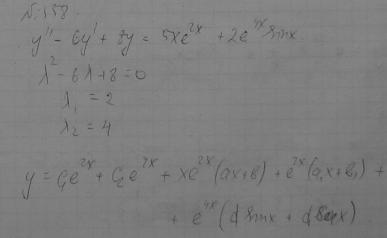 N: 558.
y'' - 6y' + 8y = 5xe^{2x} + 2e^{4x} sinx
λ² - 6λ + 8 = 0
λ₁ = 2
λ₂ = 4
y = C₁e^{2x} + C₂e^{2x} + xe^{2x}(ax+b) + e^{2x}(a₁x+b₁) +
+ e^{4x}(d sinx + d x)